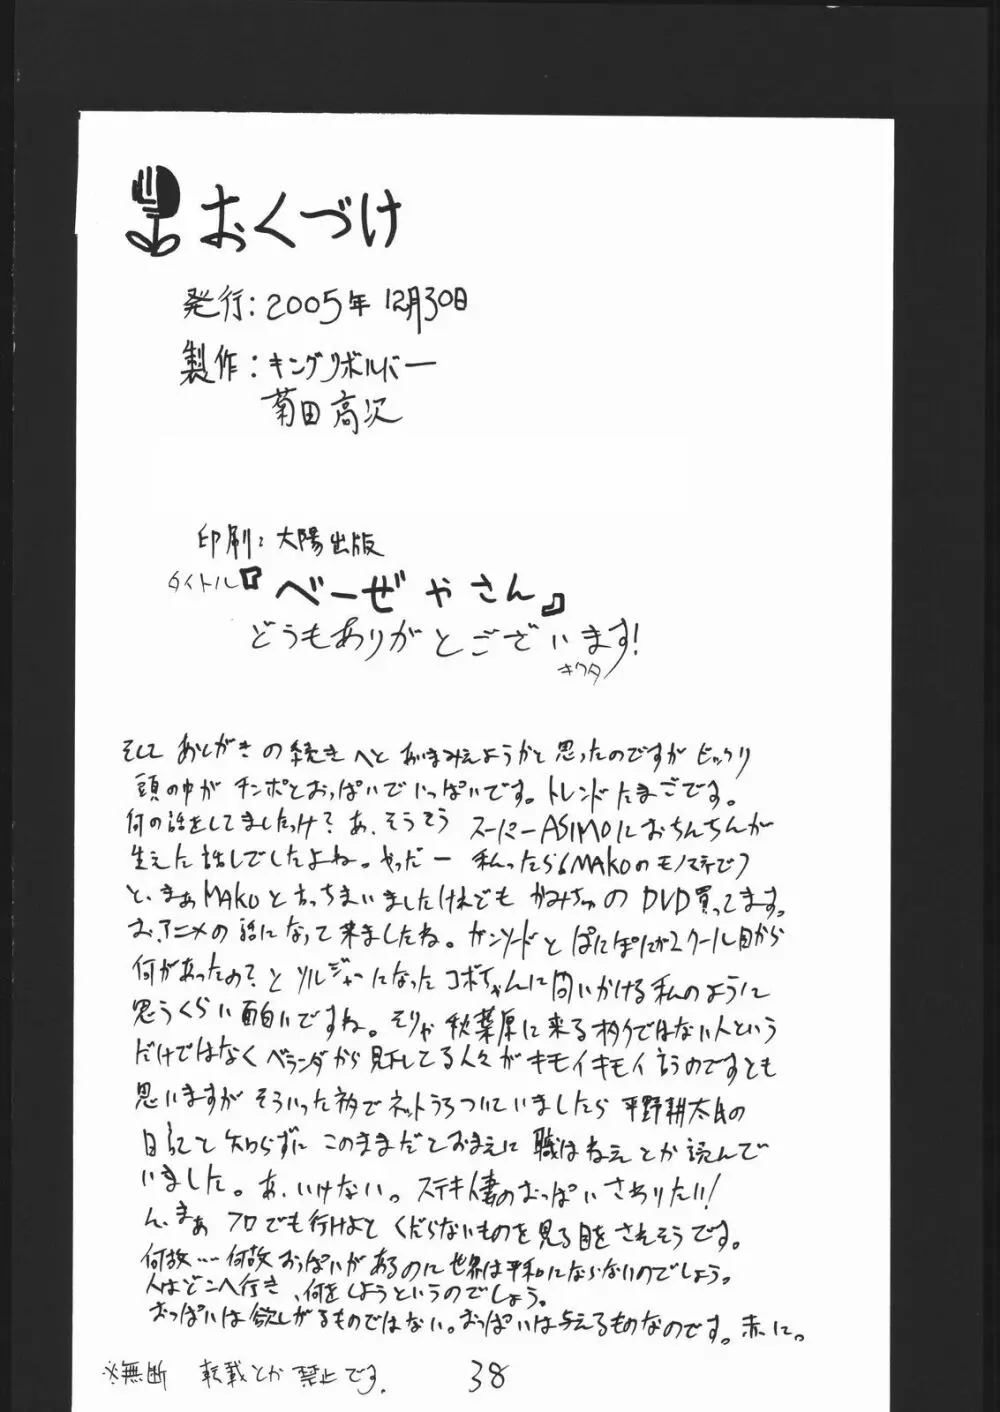 おくづけ
発行:2005年12月30日
製作:キングリボルバー
菊田高次
印刷:大陽出版
タイトル『べーぜやさん』
どうもありがとございます!
キクタ
そしてあとがきの続きへとあいまみえようかと思ったのですがビックリ
頭の中がチンポとおっぱいでいっぱいです。トレンドたまごです。
何の話をしてましたっけ?あ、そうそうスーパーASIMOにおちんちんが
生えた話しでしたよね。やっだー 私ったら(MAKOのモノマネで)
と、まぁMAKOと言っちまいましたけれどもかみちゅのDVD買ってます。
お、アニメの話になって来ましたね。ガンソードとぱにぽにが2クール目から
何があったの?とソルジャーになったコボちゃんに問いかける私のように
思うくらい面白いですね。そりゃ秋葉原に来るオタクではない人という
だけではなくベランダから見下してる人々がキモイキモイ言うのですとも
思いますがそういった訳でネットうろついていましたら平野耕太氏の
日記と知らずにこのままだとおまえに職はねえとか読んで
いました。あ、いけない。ステキ人妻のおっぱいさわりたい!
ん、まぁプロでも行けよとくだらないものを見る目をされそうです。
何故……何故おっぱいがあるのに世界は平和にならないのでしょう。
人はどこへ行き、何をしようというのでしょう。
おっぱいは欲しがるものではない。おっぱいは与えるものなのです。赤に。
※無断 転載とか禁止です.
38